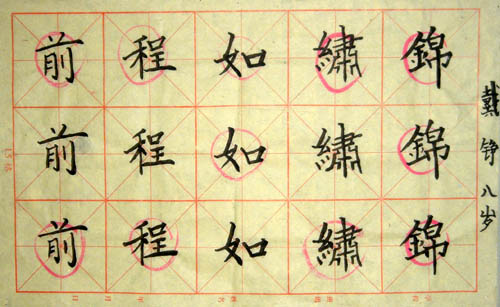 前程如繡錦
前程如繡錦
前程如繡錦
戴铮八岁